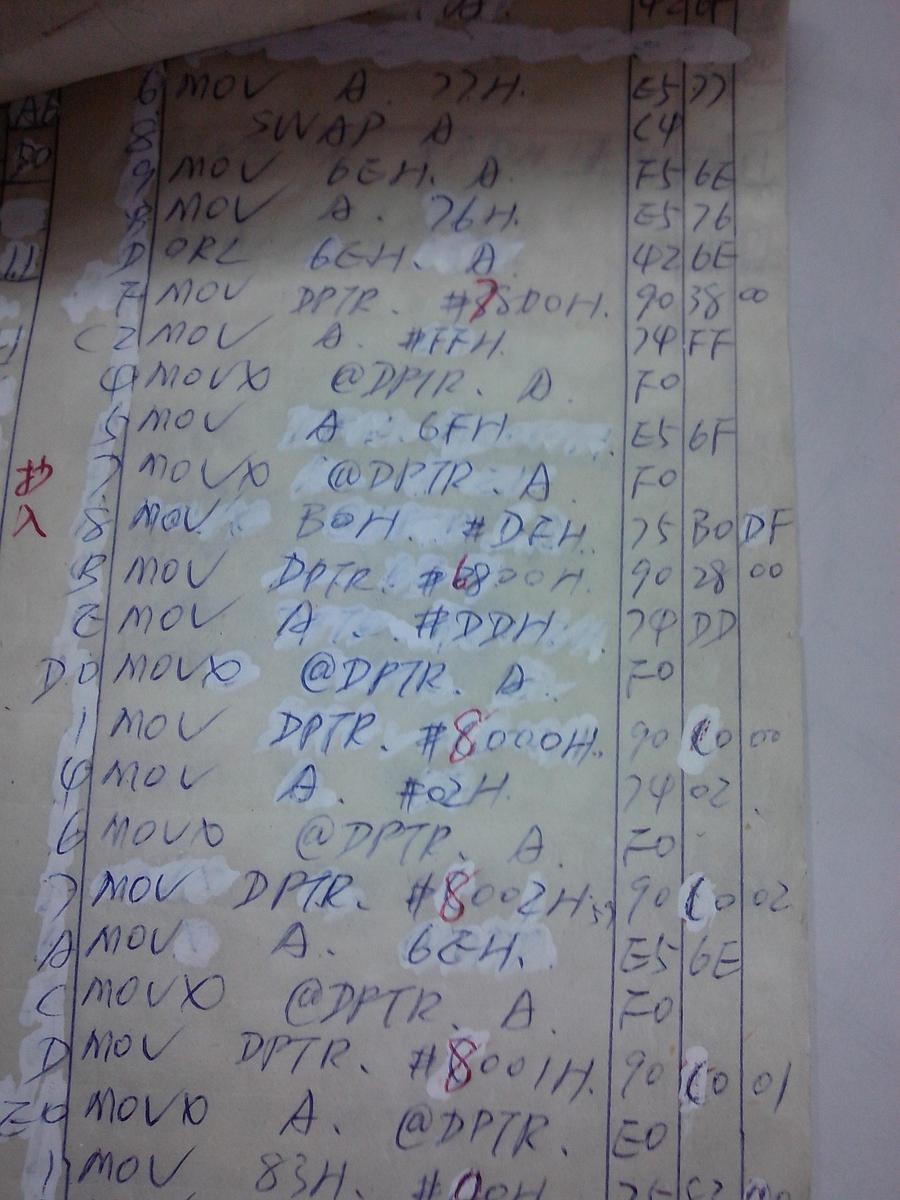 6 MOV A. 77H. E5 77
8 SWAP A C4
9 MOV 6EH. A F5 6E
MOV A. 76H. E5 76
D ORL 6EH. A 42 6E
F MOV DPTR. #7800H. 90 38 00
C2 MOV A. #FFH. 74 FF
4 MOVX @DPTR. A F0
5 MOV A. 6FH. E5 6F
抄 7 MOVX @DPTR. A F0
入 8 MOV B0H. #DFH. 75 B0 DF
B MOV DPTR. #6800H. 90 28 00
E MOV A. #DDH. 74 DD
D0 MOVX @DPTR. A F0
1 MOV DPTR. #8000H. 90 C0 00
4 MOV A. #02H. 74 02
6 MOVX @DPTR. A F0
7 MOV DPTR. #8002H. 90 C0 02
A MOV A. 6EH. E5 6E
C MOVX @DPTR. A F0
D MOV DPTR. #8001H. 90 C0 01
E0 MOVX A. @DPTR. E0
1 MOV 83H. #00H 75